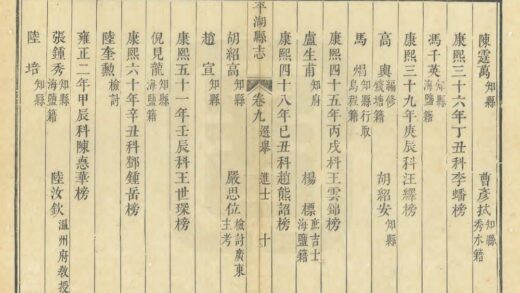 陳霆萬 知縣 曹彥栻 知縣秀水籍
康熙三十六年丁丑科李蟠榜
馮千英 知縣海鹽籍
康熙三十九年庚辰科汪繹榜
高輿 編修錢塘籍 胡紹安 知縣
馬 知縣行取烏程籍
康熙四十五年丙戌科王雲錦榜
盧生甫 知府 楊標 庶吉士海鹽籍
康熙四十八年己丑科趙熊詔榜
平湖縣志 卷九 選舉 進士 十
胡紹高 知縣 嚴思位 檢討廣東主考
趙宣 知縣
康熙五十一年壬辰科王世琛榜
倪見龍 知縣海鹽籍
康熙六十年辛丑科鄧鍾岳榜
陸奎勳 檢討
雍正二年甲辰科陳惪華榜
張鍾秀 知縣海鹽籍 陸汝欽 溫州府教授
陸培 知縣